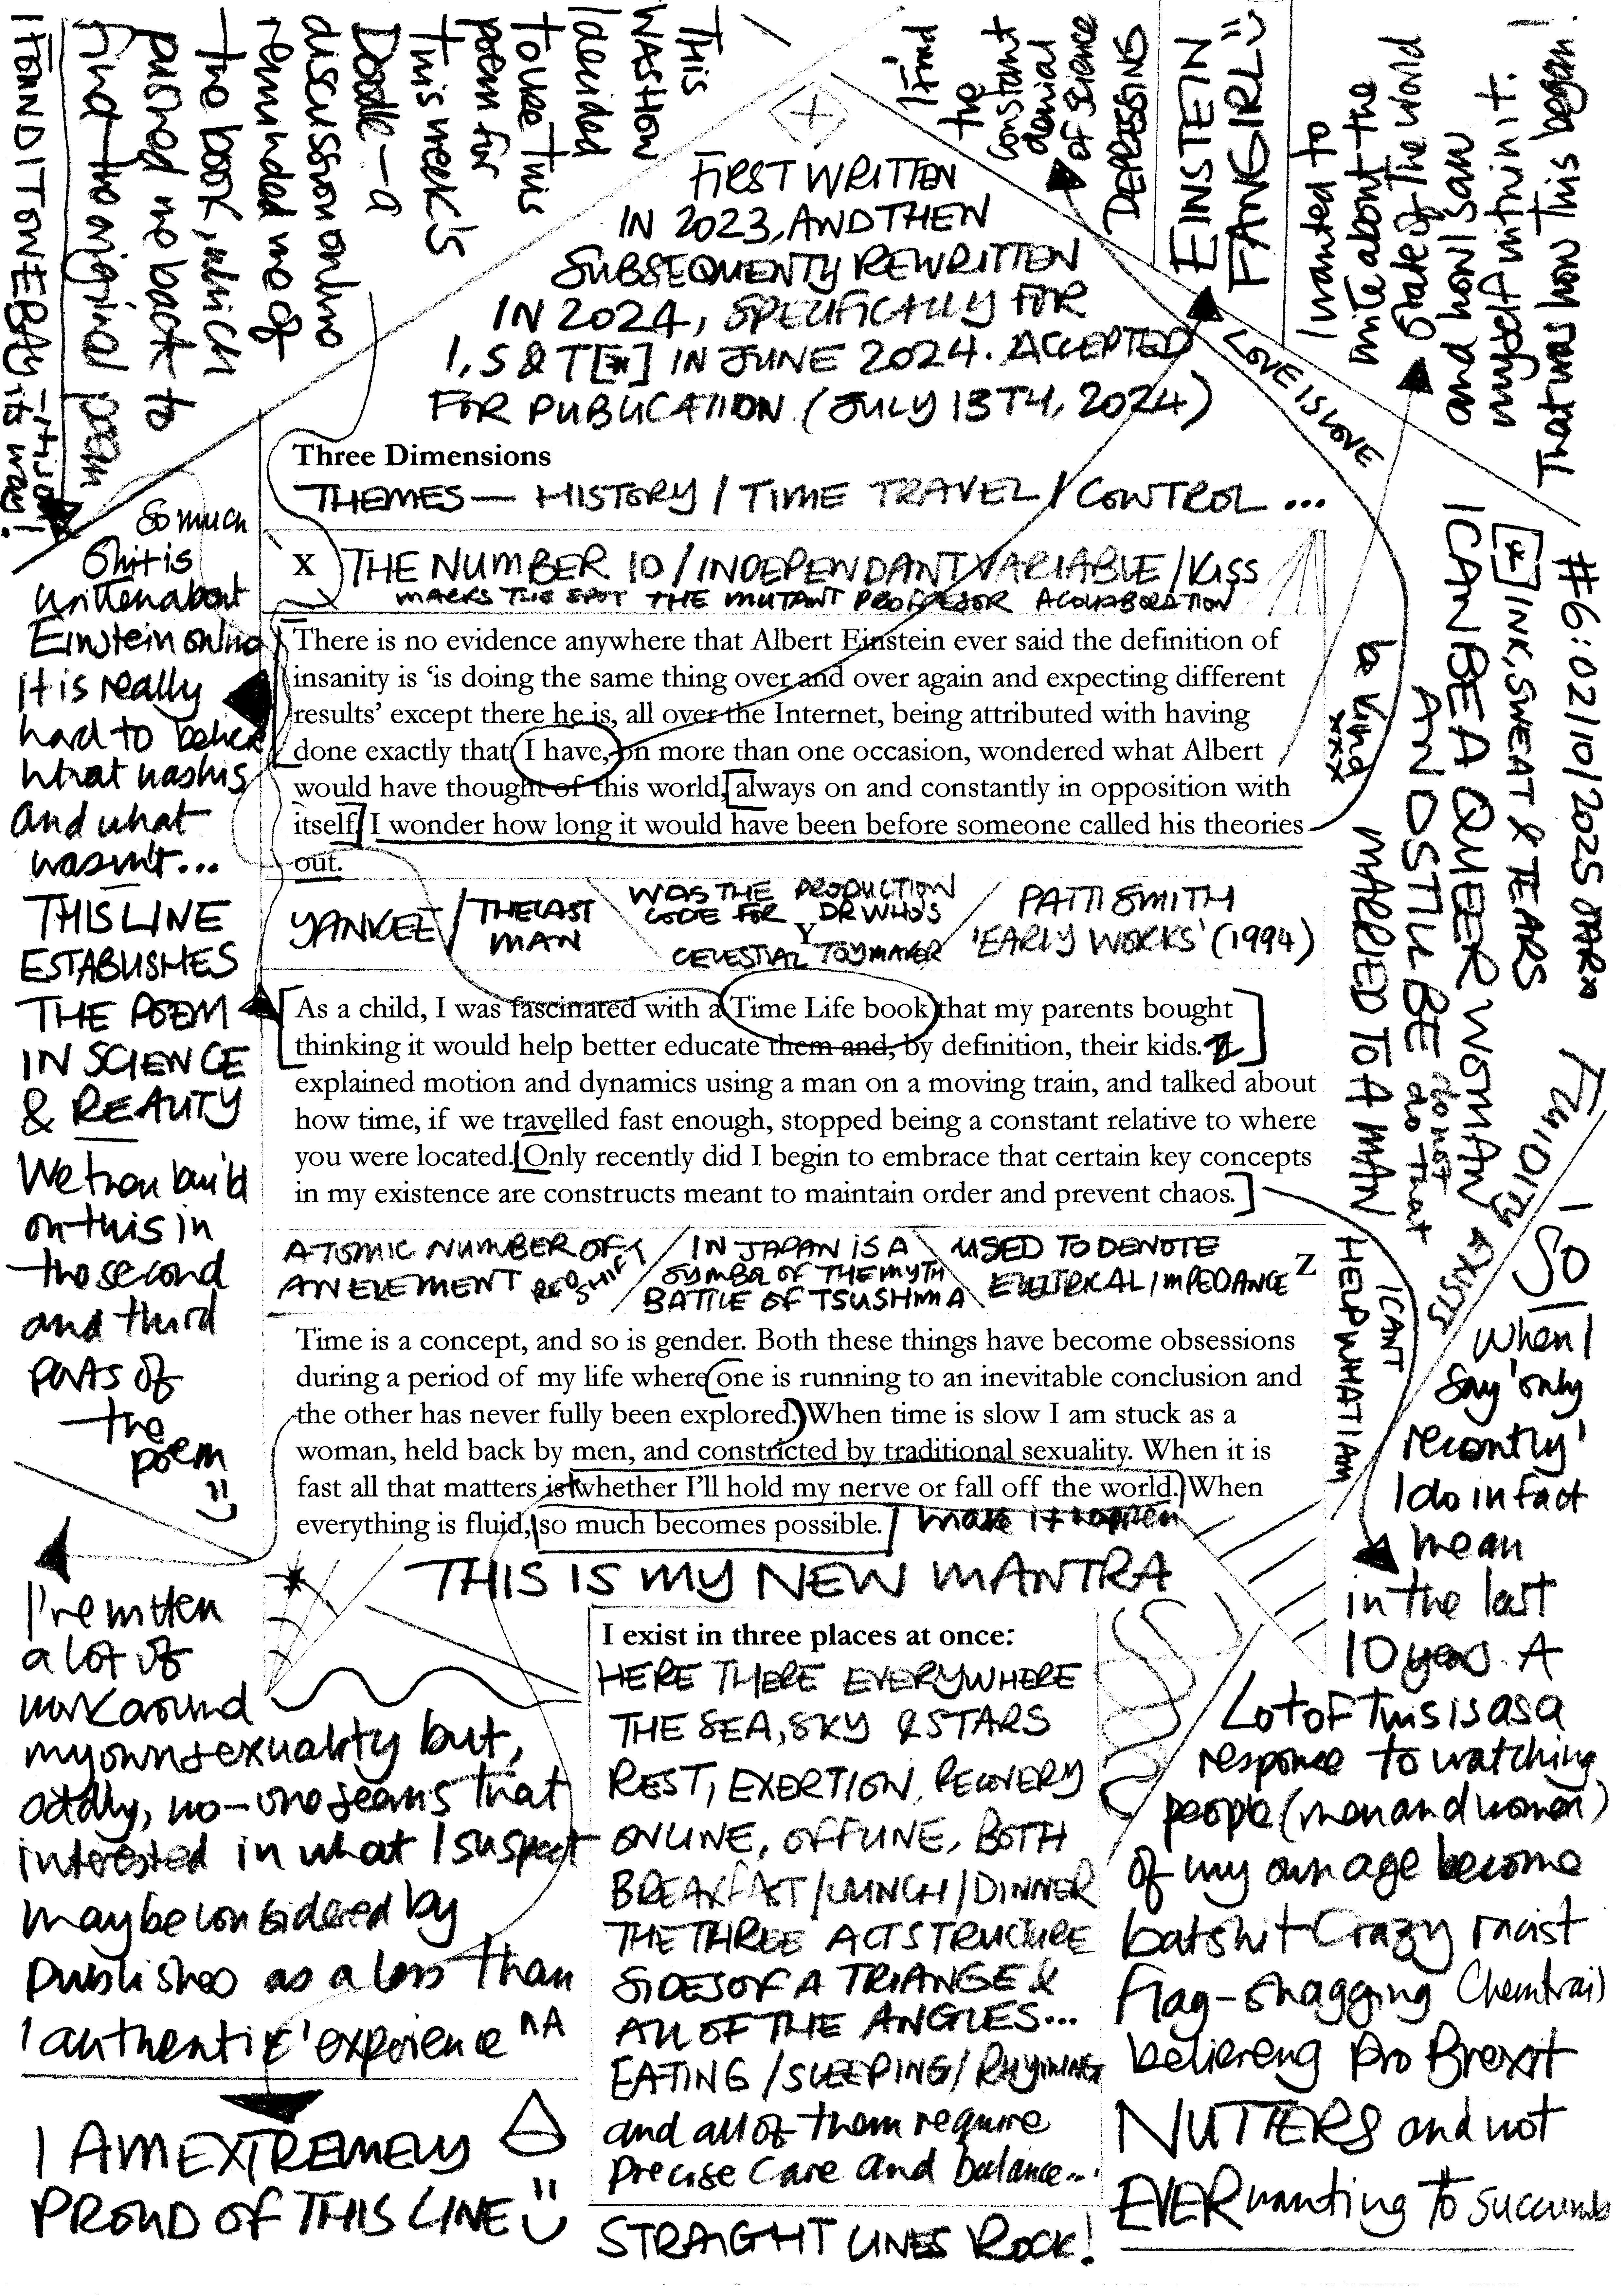 THIS
WAS HOW
I decided
to use this
poem for
this week's
Doodle - a
discussion online
reminded me of
the book, which
pushed me back to
find the original poem
I FOUND IT ONE BAY
its way!
I find
the
constant
denial
of science
DEPRESSING
EINSTEIN
FANGIRL
I wanted to
write about the
state of the world
and how I saw
myself within it.
That was how this began!
FIRST WRITTEN
IN 2023, AND THEN
SUBSEQUENTY REWRITTEN
IN 2024, SPECIFICALLY FOR
I, S & T [*] IN JUNE 2024. ACCEPTED
FOR PUBLICATION (JULY 13TH, 2024)
LOVE IS LOVE
Three Dimensions
THEMES — HISTORY / TIME TRAVEL / CONTROL ...
X THE NUMBER 10 / INDEPENDANT VARIABLE / KISS
MARKS THE SPOT THE MUTANT PROFESSOR A COLLABORATION
There is no evidence anywhere that Albert Einstein ever said the definition of
insanity is ‘is doing the same thing over and over again and expecting different
results’ except there he is, all over the Internet, being attributed with having
done exactly that I have, on more than one occasion, wondered what Albert
would have thought of this world, always on and constantly in opposition with
itself I wonder how long it would have been before someone called his theories
out.
YANKEE / THE LAST
MAN
WAS THE PRODUCTION
CODE FOR DR WHO'S
CELESTIAL TOYMAKER
Y
PATTI SMITH
'EARLY WORKS' (1994)
As a child, I was fascinated with a Time Life book that my parents bought
thinking it would help better educate them and, by definition, their kids. It
explained motion and dynamics using a man on a moving train, and talked about
how time, if we travelled fast enough, stopped being a constant relative to where
you were located. Only recently did I begin to embrace that certain key concepts
in my existence are constructs meant to maintain order and prevent chaos.
ATOMIC NUMBER OF
AN ELEMENT RED SHIFT
IN JAPAN IS A
SYMBOL OF THE MYTH
BATTLE OF TSUSHIMA
USED TO DENOTE
ELECTRICAL IMPEDANCE Z
Time is a concept, and so is gender. Both these things have become obsessions
during a period of my life where one is running to an inevitable conclusion and
the other has never fully been explored. When time is slow I am stuck as a
woman, held back by men, and constricted by traditional sexuality. When it is
fast all that matters is whether I’ll hold my nerve or fall off the world. When
everything is fluid, so much becomes possible. make it happen
THIS IS MY NEW MANTRA
I exist in three places at once:
HERE THERE EVERYWHERE
THE SEA, SKY & STARS
REST, EXERTION, RECOVERY
ONLINE, OFFLINE, BOTH
BREAKFAST / LUNCH / DINNER
THE THREE ACT STRUCTURE
SIDES OF A TRIANGE &
ALL OF THE ANGLES...
EATING / SLEEPING / RHYMING
and all of them require
precise care and balance...
STRAIGHT LINES ROCK!
So much
shit is
written about
Einstein online
it is really
hard to believe
what was his
and what
wasn't...
THIS LINE
ESTABLISHES
THE POEM
IN SCIENCE
& REALITY
We then build
on this in
the second
and third
parts of
the
poem
I've written
a lot of
work around
my own sexuality but,
oddly, no-one seems that
interested in what I suspect
may be considered by
publishers as a less than
'authentic' experience
I AM EXTREMELY
PROUD OF THIS LINE
#6: 02/10/2025
[*] INK, SWEAT & TEARS
I CAN BE A QUEER WOMAN
AND STILL BE
MARRIED TO A MAN
do not
do that
be kind
xxx
FLUIDITY EXISTS
I CANT
HELP WHAT I AM
SO
when I
say 'only
recently'
I do in fact
mean
in the last
10 years. A
Lot of this is as a
response to watching
people (men and women)
of my own age become
batshit crazy racist
flag-shagging chemtrail
believeng pro Brexit
NUTTERS and not
EVER wanting to succumb